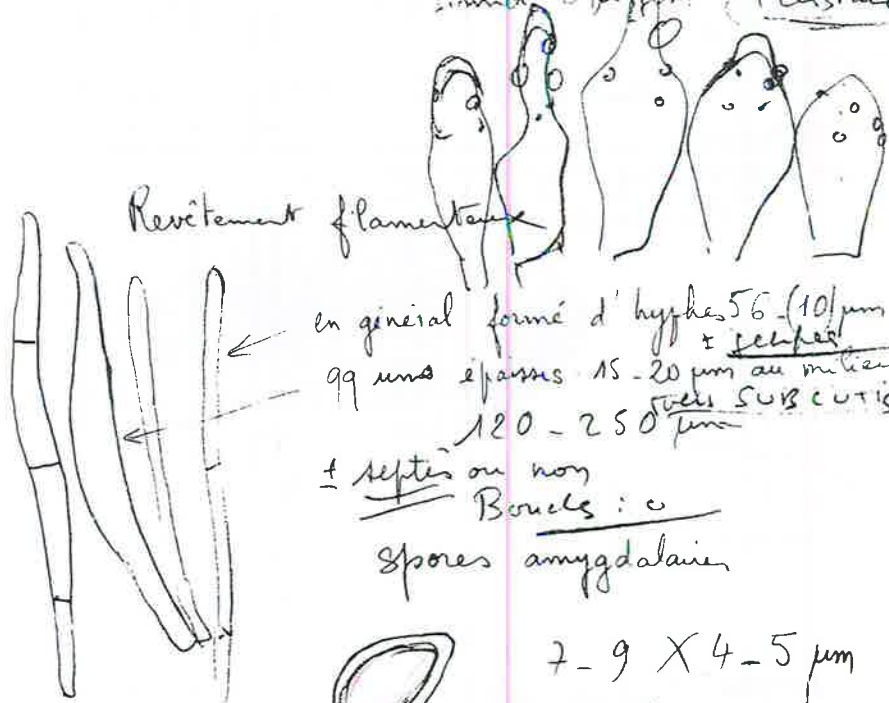 Revêtement filamenteux
en général formé d'hyphes 5 6 - (10) µm
±
99 unes épaisses 15 - 20 µm au milieu
vers SUBCUTIS
120 - 250 µm
± septés ou non
Boucles : 0
spores amygdalaires
7 - 9 X 4 - 5 µm